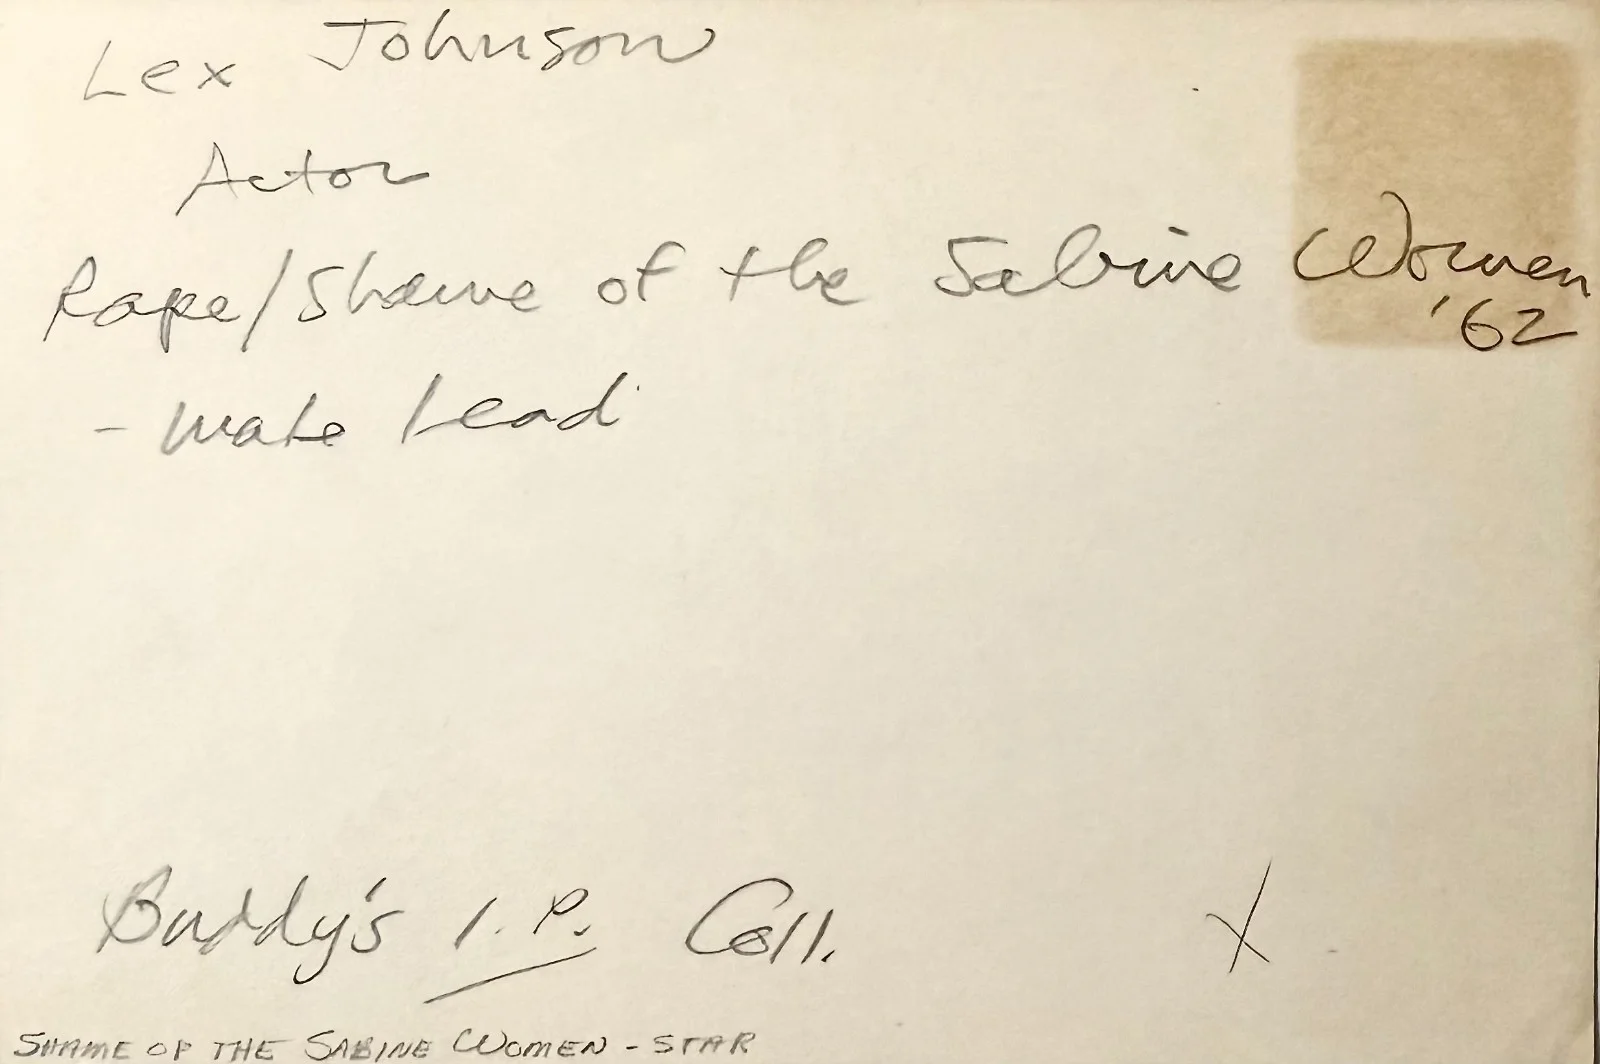 Lex Johnson
Actor
Rape/Shame of the Sabine Women
'62
- male lead
Buddy's I.P. Coll. X
SHAME OF THE SABINE WOMEN - STAR